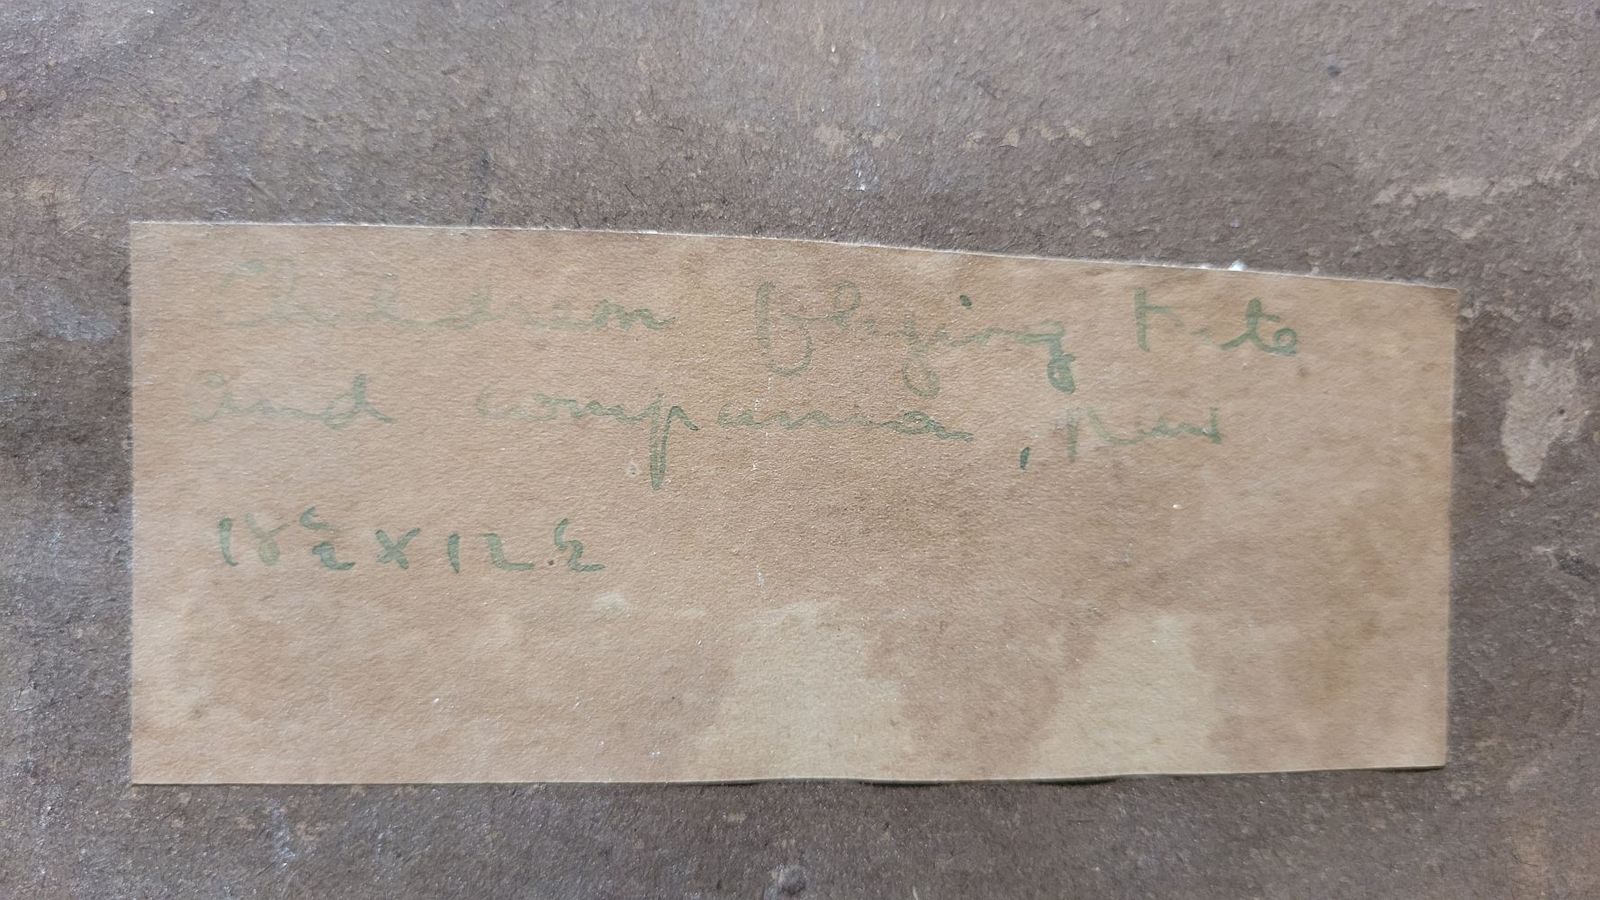 Children flying Kite
and compania,
18½ x 12½